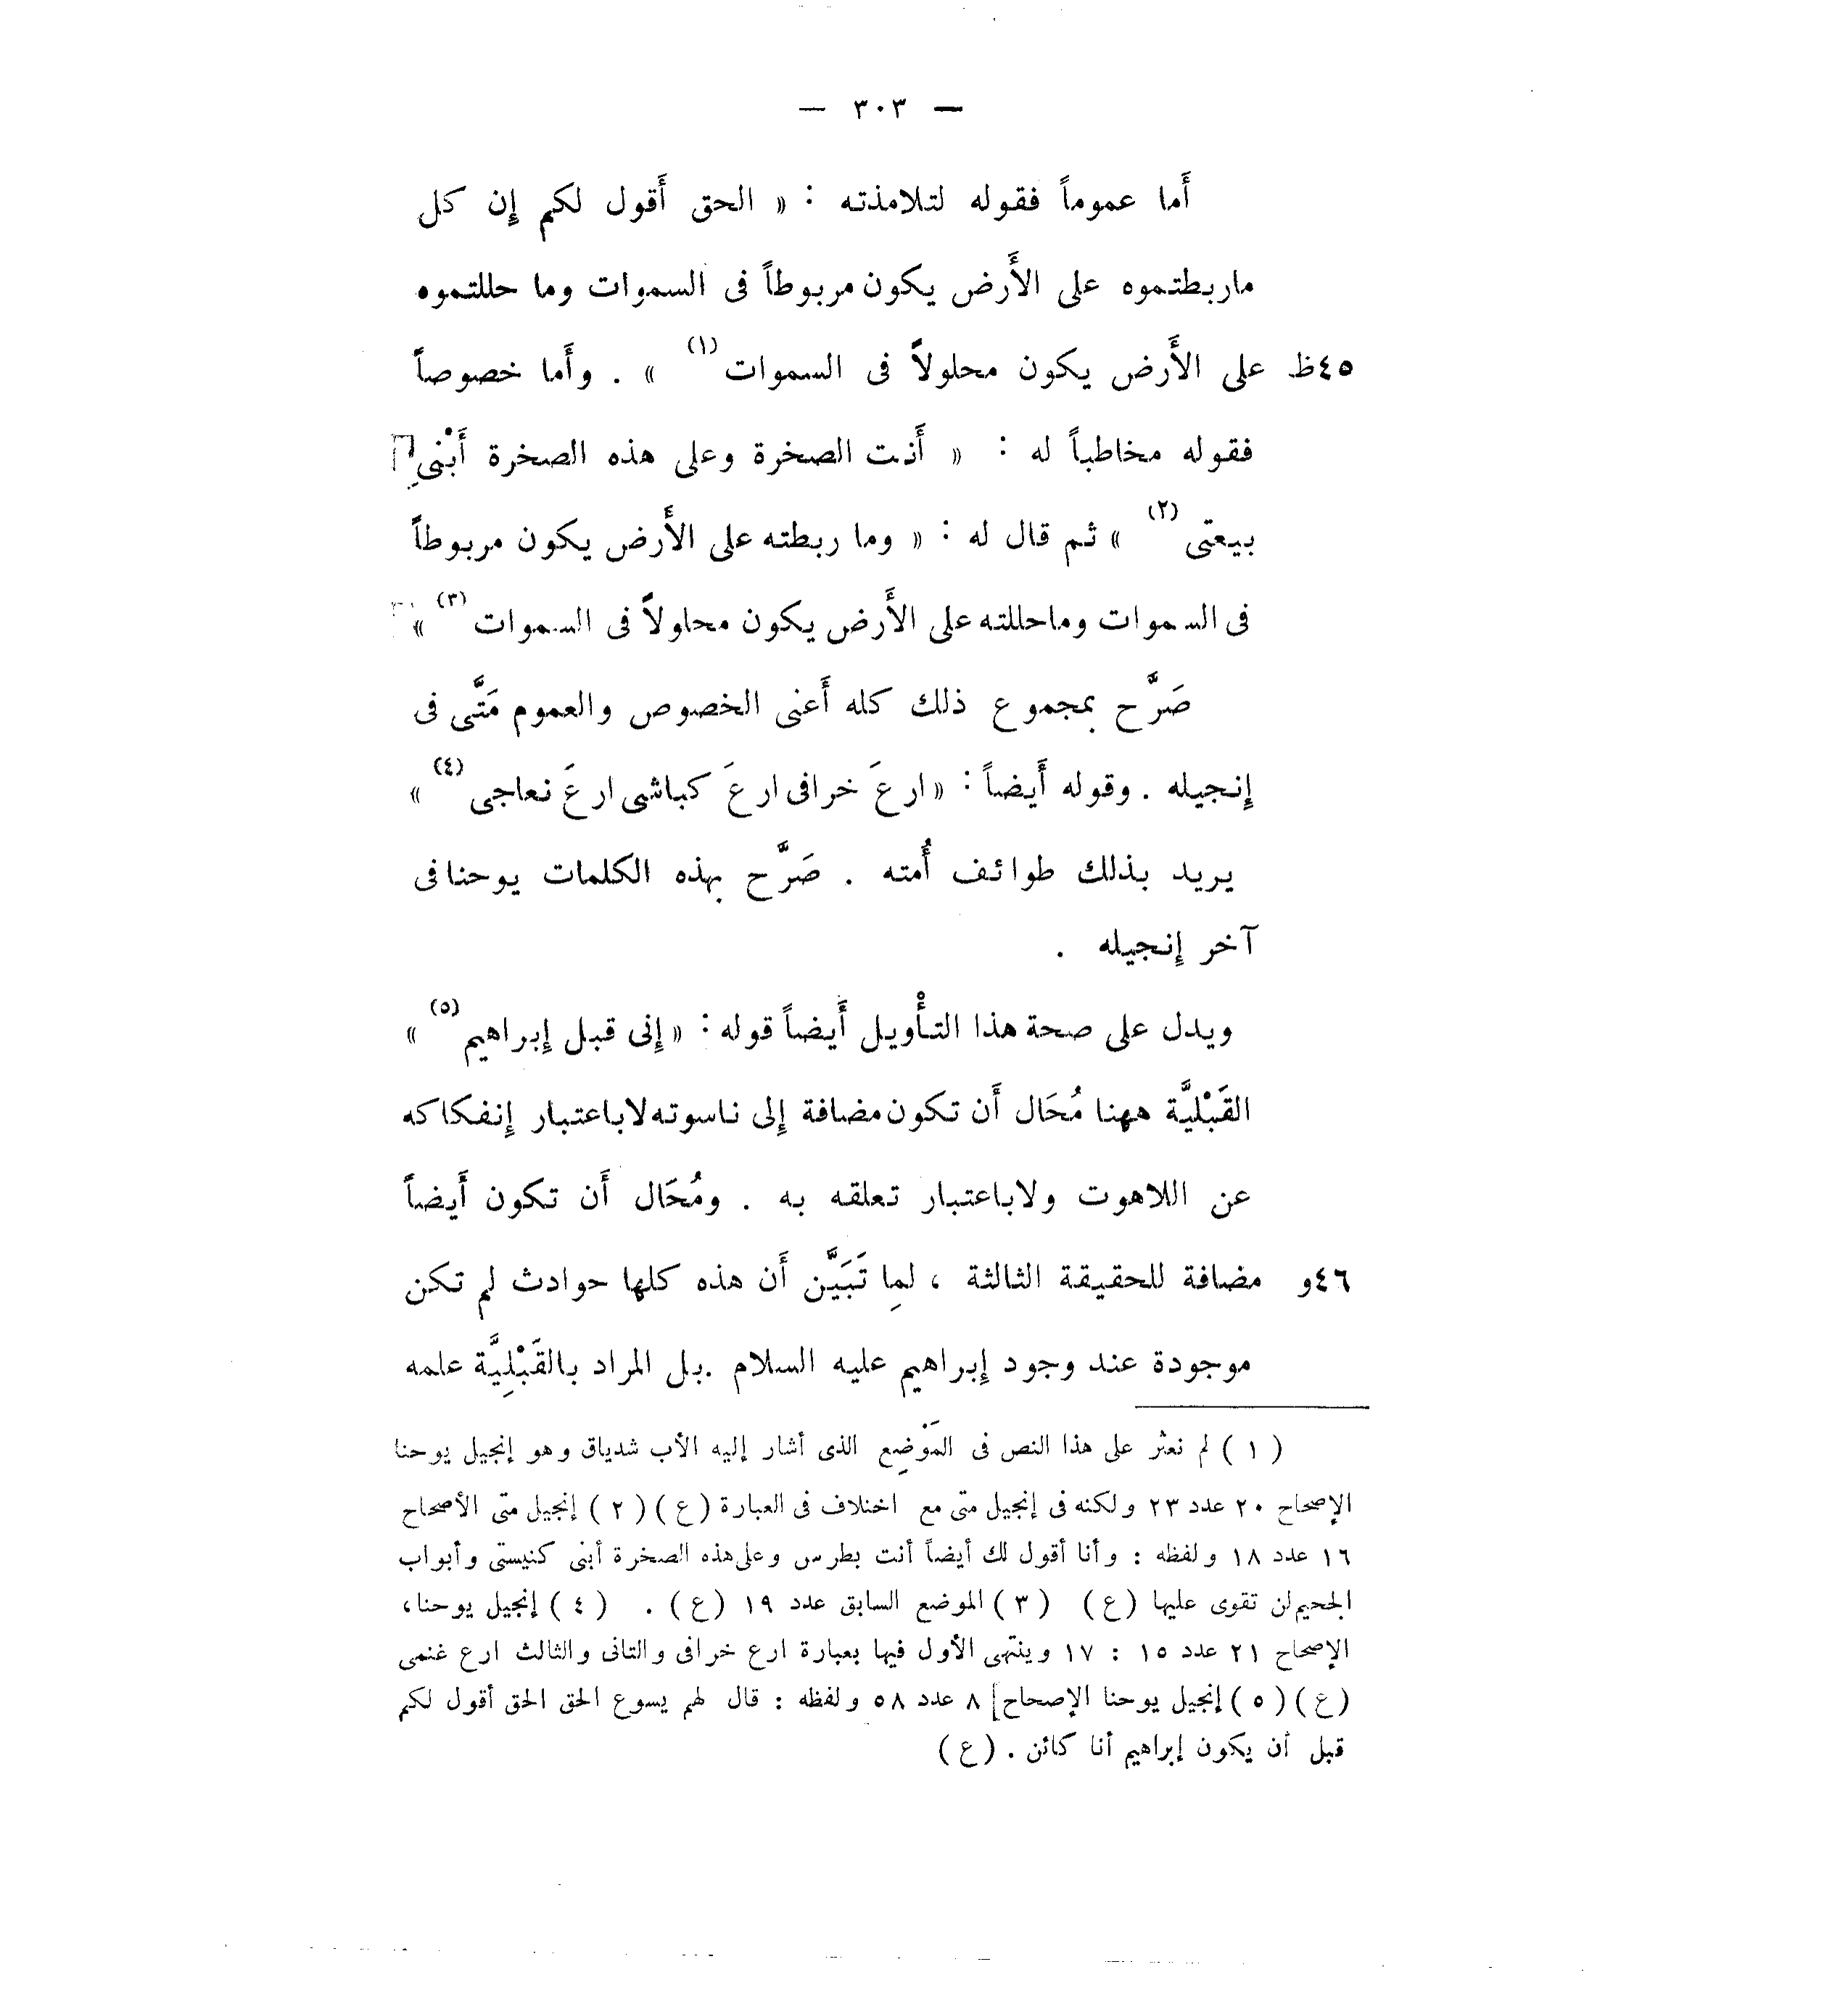 — ٣٠٣ —
أَما عموماً فقوله لتلامذته : « الحق أَقول لكم إِن كل
ماربطتموه على الأَرض يكون مربوطاً فى السموات وما حللتموه
٤٥ظ على الأَرض يكون محلولاً فى السموات (١) » . وأَما خصوصاً
فقوله مخاطباً له : « أَنت الصخرة وعلى هذه الصخرة أَبْنِى
بيعتى (٢) » ثم قال له : « وما ربطته على الأَرض يكون مربوطاً
فى السموات وماحللته على الأَرض يكون محلولاً فى السموات (٣) »
صَرَّح بمجموع ذلك كله أَعنى الخصوص والعموم مَتَّى فى
إِنجيله . وقوله أَيضاً : « ارعَ خرافى ارعَ كباشى ارعَ نعاجى (٤) »
يريد بذلك طوائف أُمته . صَرَّح بهذه الكلمات يوحنا فى
آخر إِنجيله .
ويدل على صحة هذا التأْويل أَيضاً قوله : « إِنى قبل إِبراهيم (٥) »
القَبْليَّة ههنا مُحَال أَن تكون مضافة إِلى ناسوته لاباعتبار إِنفكاكه
عن اللاهوت ولاباعتبار تعلقه به . ومُحَال أَن تكون أَيضاً
٤٦و مضافة للحقيقة الثالثة ، لمِا تَبَيَّن أَن هذه كلها حوادث لم تكن
موجودة عند وجود إِبراهيم عليه السلام . بل المراد بالقَبْلِيَّة علمه
( ١ ) لم نعثر على هذا النص فى المَوْضِع الذى أشار إليه الأب شدياق وهو إنجيل يوحنا
الإصحاح ٢٠ عدد ٢٣ ولكنه فى إنجيل متى مع اختلاف فى العبارة (ع) ( ٢ ) إنجيل متى الأصحاح
١٦ عدد ١٨ ولفظه : وأنا أقول لك أيضاً أنت بطرس وعلى هذه الصخرة أبنى كنيستى وأبواب
الجحيم لن تقوى عليها (ع) ( ٣ ) الموضع السابق عدد ١٩ (ع) . ( ٤ ) إنجيل يوحنا،
الإصحاح ٢١ عدد ١٥ : ١٧ وينتهى الأول فيها بعبارة ارع خرافى والثانى والثالث ارع غنمى
(ع) ( ٥ ) إنجيل يوحنا الإصحاح] ٨ عدد ٥٨ ولفظه : قال لهم يسوع الحق الحق أقول لكم
قبل أن يكون إبراهيم أنا كائن . (ع)